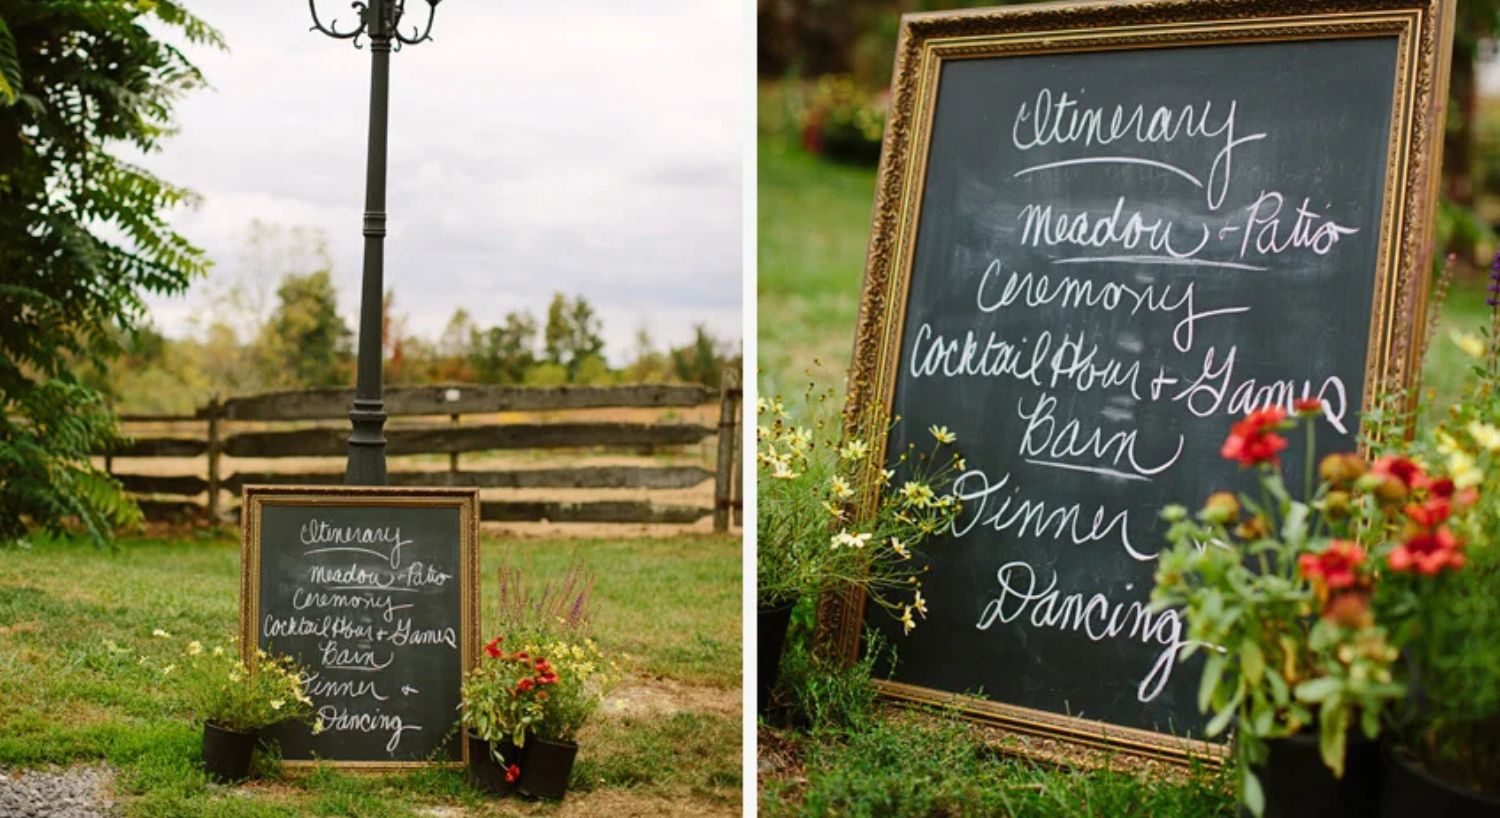 Itinerary
Meadow + Patio
Ceremony
Cocktail Hour + Games
Barn
Dinner +
Dancing
Itinerary
Meadow + Patio
Ceremony
Cocktail Hour + Games
Barn
Dinner
Dancing